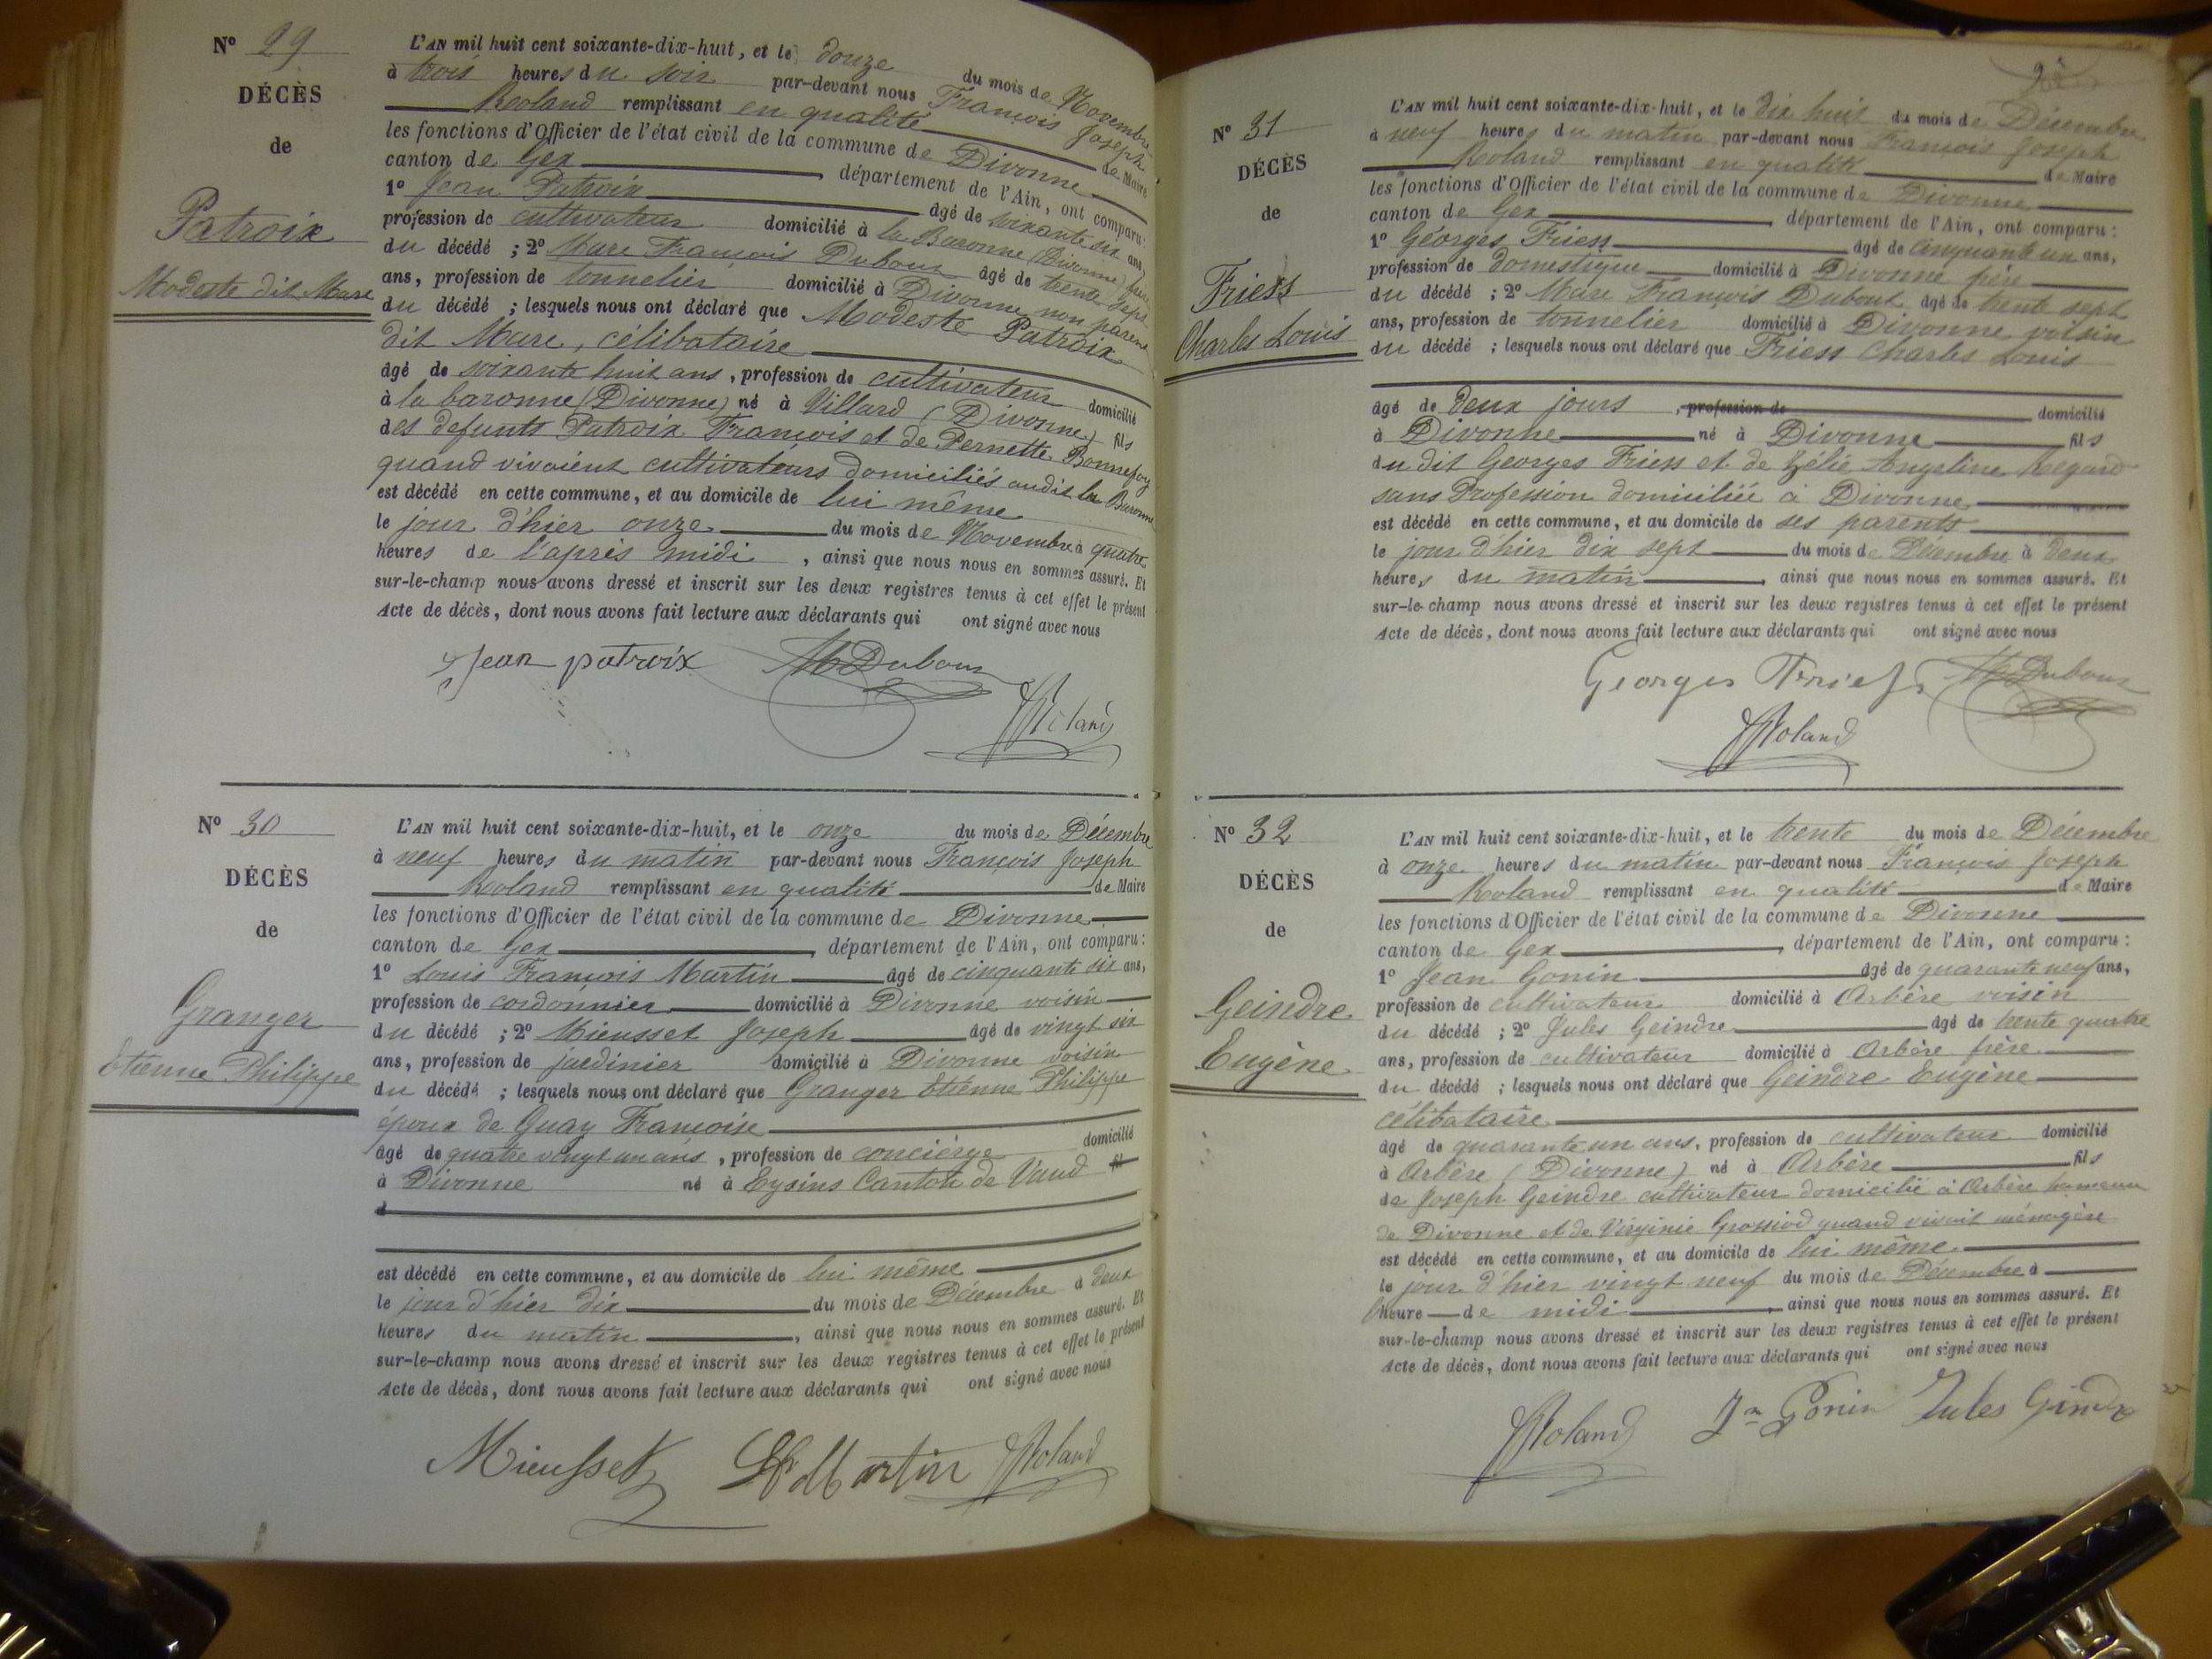 N° 29
DÉCÈS
de
Patroix
Modeste dit Marc
L'AN mil huit cent soixante-dix-huit, et le douze du mois de Novembre
à trois heures du soir par-devant nous François Joseph
Roland remplissant en qualité de Maire
les fonctions d'Officier de l'état civil de la commune de Divonne
canton de Gex, département de l'Ain, ont comparu:
1° Jean Patroix âgé de soixante six ans,
profession de cultivateur domicilié à la Baronne (Divonne) frère
du décédé ; 2° Marc François Dubout âgé de trente sept
ans, profession de tonnelier domicilié à Divonne non parent
du décédé ; lesquels nous ont déclaré que Modeste Patroix
dit Marc, célibataire
âgé de soixante huit ans, profession de cultivateur domicilié
à la baronne (Divonne) né à Villard (Divonne) fils
des defunts Patroix François et de Pernette Bonnefoy
quand vivaient cultivateurs domiciliés audit la Baronne
est décédé en cette commune, et au domicile de lui même
le jour d'hier onze du mois de Novembre à quatre
heures de l'après midi, ainsi que nous nous en sommes assuré. Et
sur-le-champ nous avons dressé et inscrit sur les deux registres tenus à cet effet le présent
Acte de décès, dont nous avons fait lecture aux déclarants qui ont signé avec nous
Jean patroix MDubout
JRoland
N° 30
DÉCÈS
de
Granger
Etienne Philippe
L'AN mil huit cent soixante-dix-huit, et le onze du mois de Décembre
à neuf heures du matin par-devant nous François Joseph
Roland remplissant en qualité de Maire
les fonctions d'Officier de l'état civil de la commune de Divonne
canton de Gex, département de l'Ain, ont comparu:
1° Louis François Martin âgé de cinquante six ans,
profession de cordonnier domicilié à Divonne voisin
du décédé ; 2° Mieusset Joseph âgé de vingt six
ans, profession de jardinier domicilié à Divonne voisin
du décédé ; lesquels nous ont déclaré que Granger Etienne Philippe
époux de Quay Françoise
âgé de quatre vingt un ans, profession de concièrge domicilié
à Divonne né à Eysins Canton de Vaud fil
d
est décédé en cette commune, et au domicile de lui même
le jour d'hier dix du mois de Décembre à deux
heures du matin, ainsi que nous nous en sommes assuré. Et
sur-le-champ nous avons dressé et inscrit sur les deux registres tenus à cet effet le présent
Acte de décès, dont nous avons fait lecture aux déclarants qui ont signé avec nous
Mieusset LFMartin JRoland
N° 31
DÉCÈS
de
Friess
Charles Louis
L'AN mil huit cent soixante-dix-huit, et le dix huit du mois de Décembre
à neuf heures du matin par-devant nous François Joseph
Roland remplissant en qualité de Maire
les fonctions d'Officier de l'état civil de la commune de Divonne
canton de Gex, département de l'Ain, ont comparu:
1° Géorges Friess âgé de cinquante un ans,
profession de domestique domicilié à Divonne père
du décédé ; 2° Marc François Dubout âgé de trente sept
ans, profession de tonnelier domicilié à Divonne voisin
du décédé ; lesquels nous ont déclaré que Friess Charles Louis
âgé de deux jours, profession de domicilié
à Divonne né à Divonne fils
du dit Georges Friess et de Zélie Angeline Regard
sans Profession domiciliée à Divonne
est décédé en cette commune, et au domicile de ses parents
le jour d'hier dix sept du mois de Décembre à deux
heures du matin, ainsi que nous nous en sommes assuré. Et
sur-le-champ nous avons dressé et inscrit sur les deux registres tenus à cet effet le présent
Acte de décès, dont nous avons fait lecture aux déclarants qui ont signé avec nous
Georges Friess MDubout
JRoland
N° 32
DÉCÈS
de
Geindre
Eugène
L'AN mil huit cent soixante-dix-huit, et le trente du mois de Décembre
à onze heures du matin par-devant nous François Joseph
Roland remplissant en qualité de Maire
les fonctions d'Officier de l'état civil de la commune de Divonne
canton de Gex, département de l'Ain, ont comparu:
1° Jean Gonin âgé de quarante neuf ans,
profession de cultivateur domicilié à Arbère voisin
du décédé ; 2° Jules Geindre âgé de trente quatre
ans, profession de cultivateur domicilié à Arbère frère
du décédé ; lesquels nous ont déclaré que Geindre Eugène
célibataire
âgé de quarante un ans, profession de cultivateur domicilié
à Arbère (Divonne) né à Arbère fils
de Joseph Geindre cultivateur domicilié à Arbère hameau
de Divonne et de Virginie Grossiod quand vivait ménagère
est décédé en cette commune, et au domicile de lui même
le jour d'hier vingt neuf du mois de Décembre à
l'heure de midi, ainsi que nous nous en sommes assuré. Et
sur-le-champ nous avons dressé et inscrit sur les deux registres tenus à cet effet le présent
Acte de décès, dont nous avons fait lecture aux déclarants qui ont signé avec nous
JRoland Jn Gonin Jules Geindre